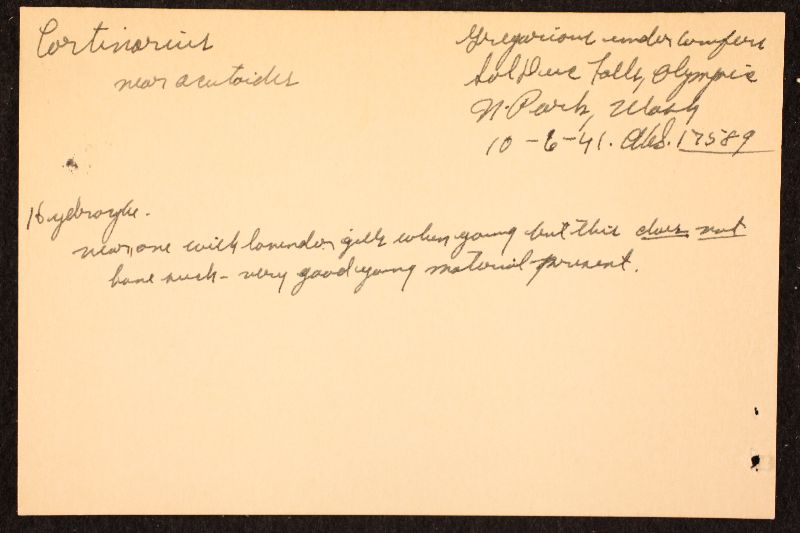 Cortinarius
near acutoides
Gregarious under conifers
Sol Duc Falls, Olympic
N. Park, Wash
10-6-41. AHS. 17589
Hydrocybe.
near one with lavender gills when young but this does not
have such - very good young material present.